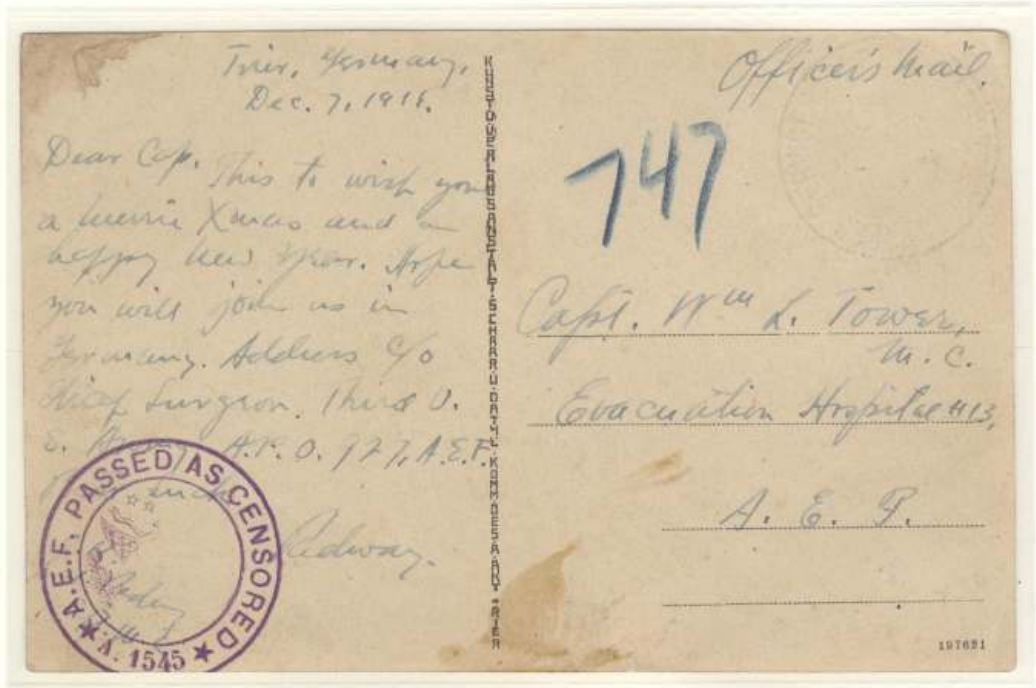 Trier, Germany,
Dec. 7, 1918.
Dear Cap.
This to wish you
a merrie Xmas and a
happy new year. Hope
you will join us in
Germany. Address c/o
Chief Surgeon. Third U.
S. Army, A.P.O. 927, A.E.F.
luck
Redway.
A.E.F. PASSED AS CENSORED
A. 1545
Officer's Mail.
747
Capt. Wm L. Tower,
M. C.
Evacuation Hospital #13,
A. E. F.
197621